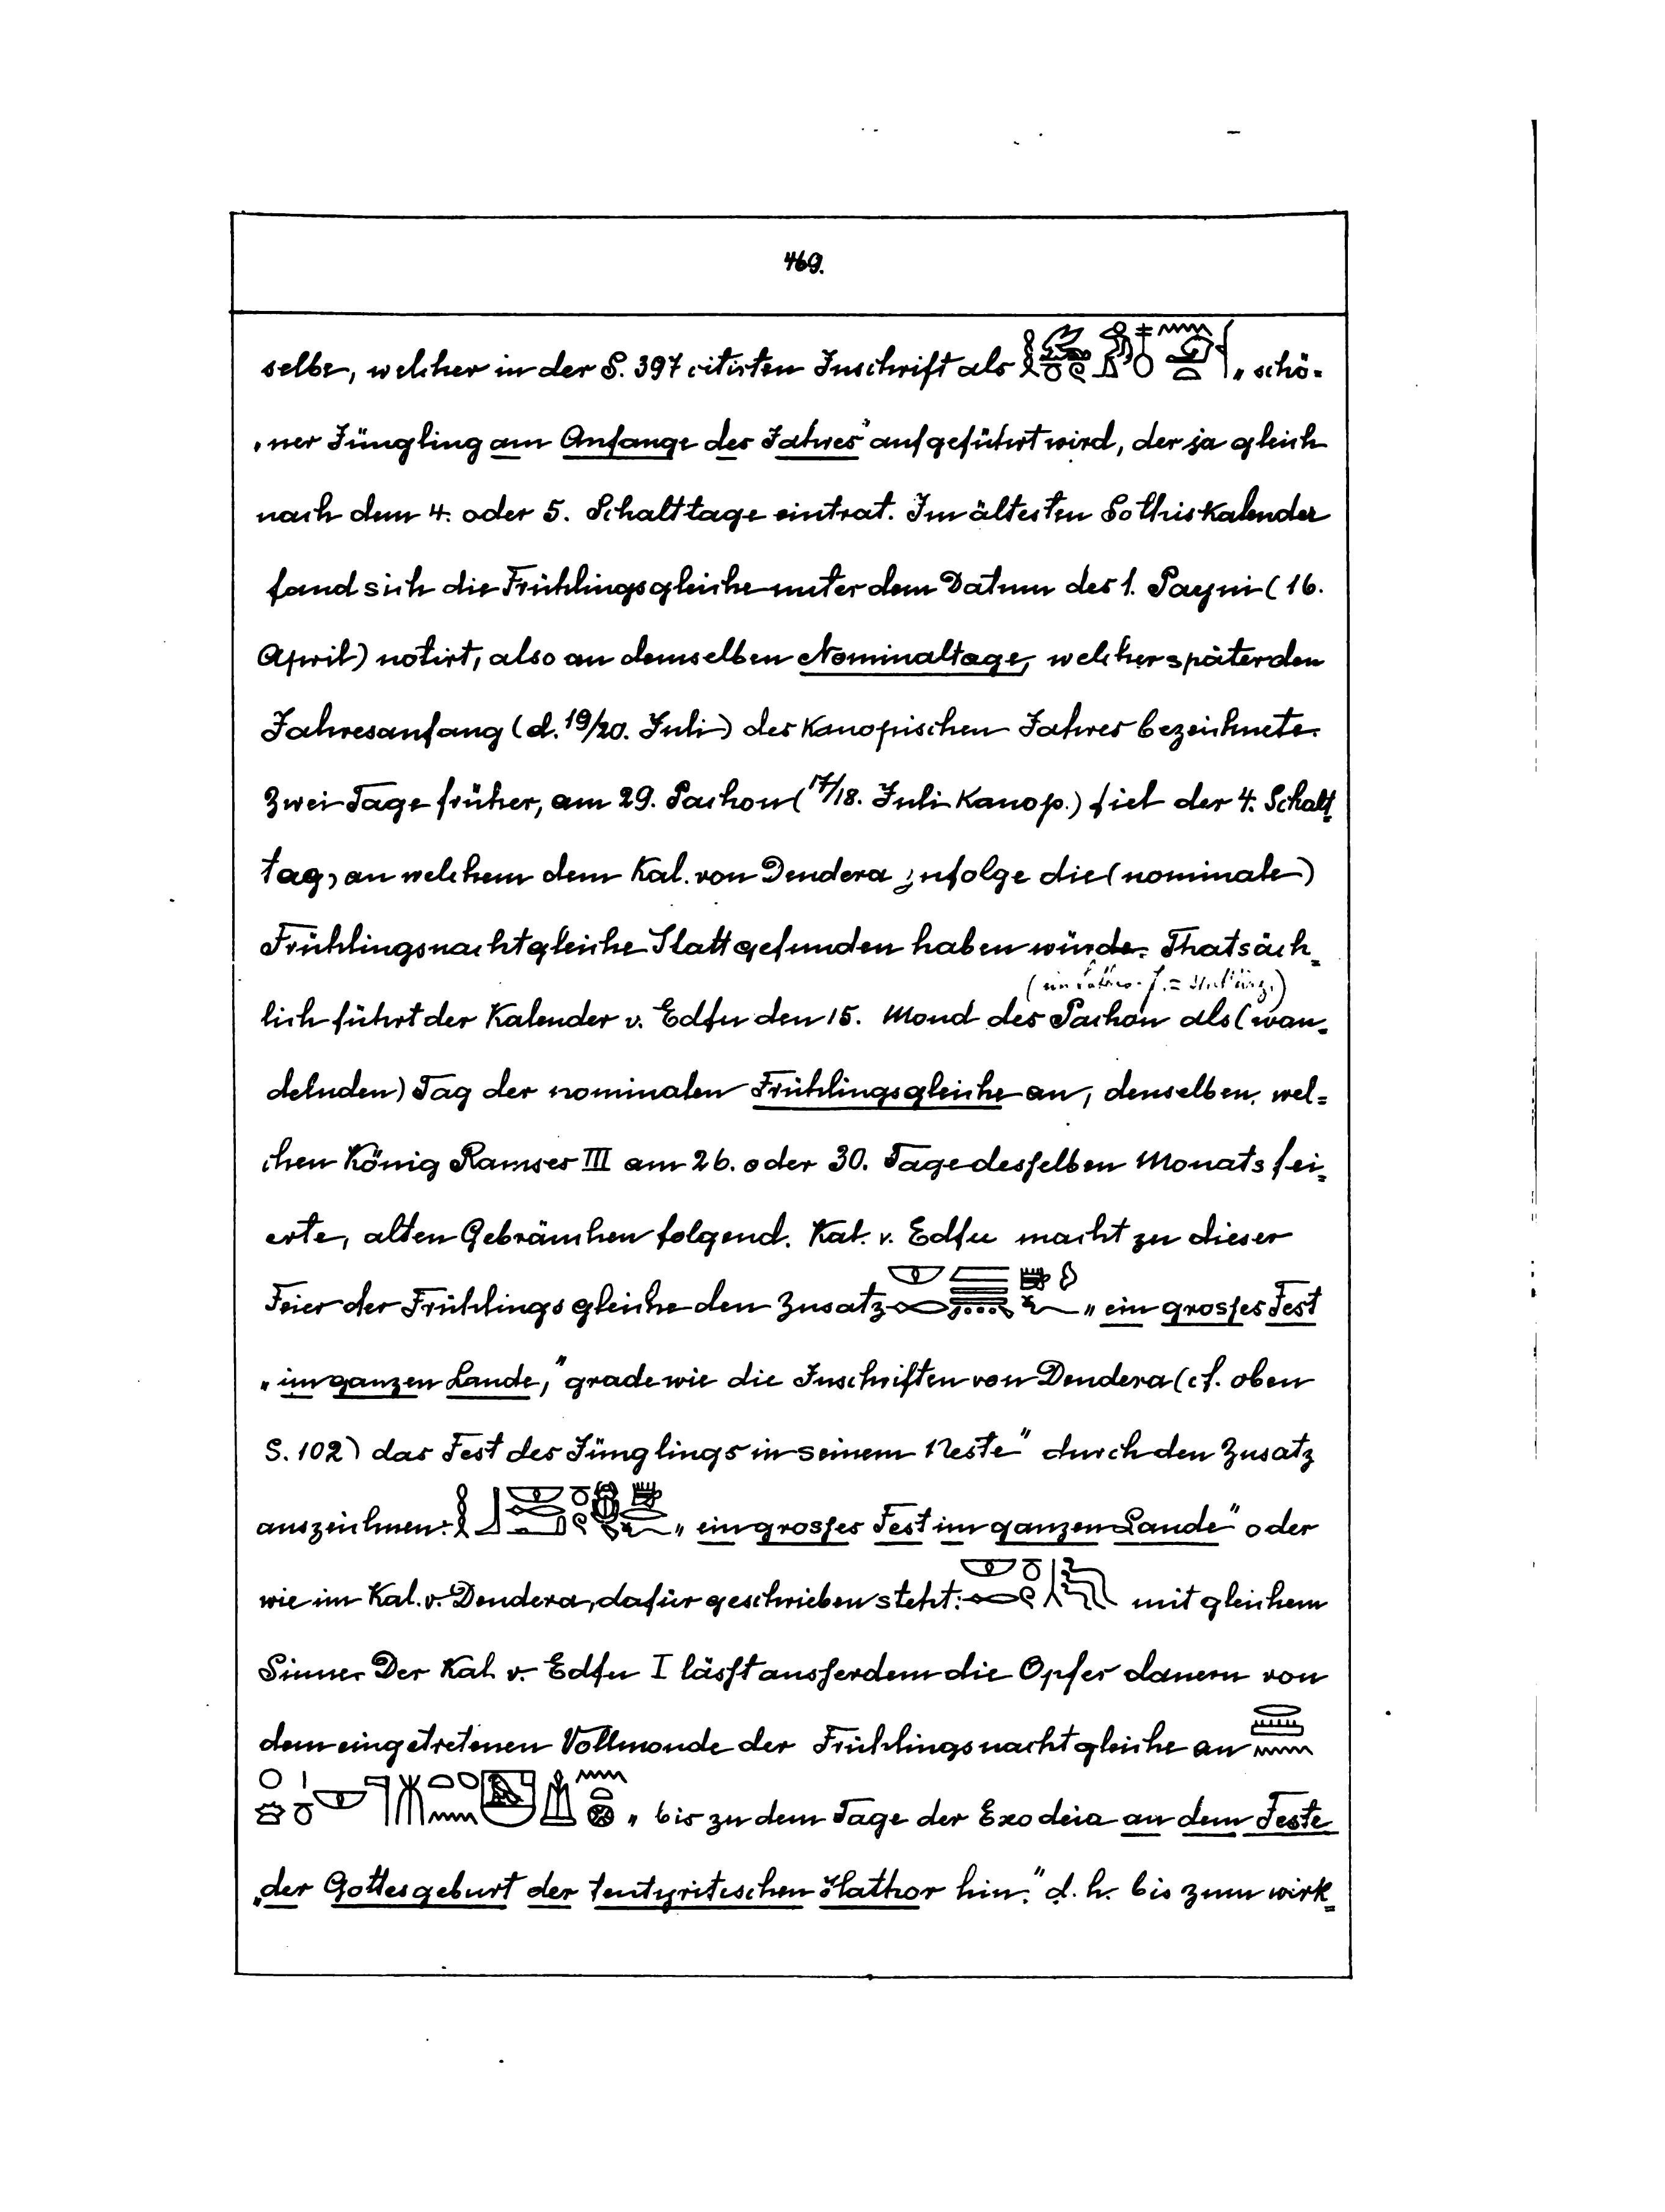 469.
selbe, welcher in der S. 397 citirten Inschrift als „schö-
„ner Jüngling am Anfange des Jahres" aufgeführt wird, der ja gleich
nach dem 4. oder 5. Schalttage eintrat. Im ältesten Sothiskalender
fand sich die Frühlingsgleiche unter dem Datum des 1. Payni (16.
April) notirt, also an demselben Nominaltage, welcher später den
Jahresanfang (d. 19/20. Juli) des Kanopischen Jahres bezeichnete.
Zwei Tage früher, am 29. Pachon (17/18. Juli Kanop.) fiel der 4. Schalt-
tag, an welchem dem Kal. von Dendera zufolge die (nominale)
Frühlingsnachtgleiche Statt gefunden haben würde. Thatsäch-
lich führt der Kalender v. Edfu den 15. Mond des Pachon als (wan-
delnden) Tag der nominalen Frühlingsgleiche an, denselben, wel-
chen König Ramses III am 26. oder 30. Tage desselben Monats fei-
erte, alten Gebräuchen folgend. Kal. v. Edfu macht zu dieser
Feier der Frühlingsgleiche den Zusatz „ein grosses Fest
„im ganzen Lande," grade wie die Inschriften von Dendera (cf. oben
S. 102) das Fest des Jünglings in seinem Neste" durch den Zusatz
auszeichnen: „ein grosses Fest im ganzen Lande" oder
wie im Kal. v. Dendera, dafür geschrieben steht: mit gleichem
Sinne. Der Kal. v. Edfu I lässt ausserdem die Opfer dauern von
dem eingetretenen Vollmonde der Frühlingsnachtgleiche an
„bis zu dem Tage der Exodeia an dem Feste
„der Gottesgeburt der tentyritischen Hathor hin." d. h. bis zum wirk-